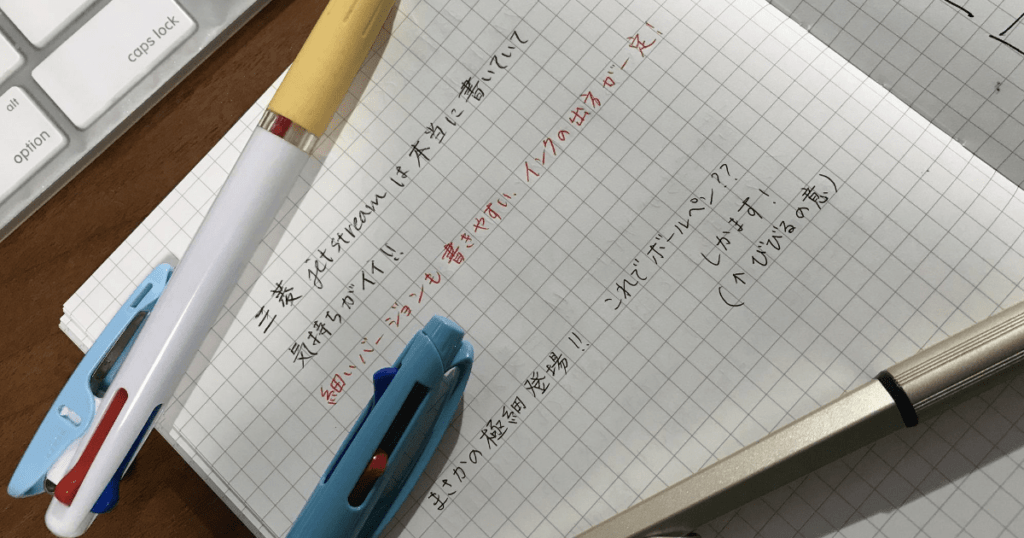 caps lock
alt
option
三菱 jetstream は本当に書いていて
気持ちがイイ!!
細いバージョンも書きやすい、インクの出方が一定!
まさかの極細登場!!
これでボールペン??
しかます!
(↑びびるの意)